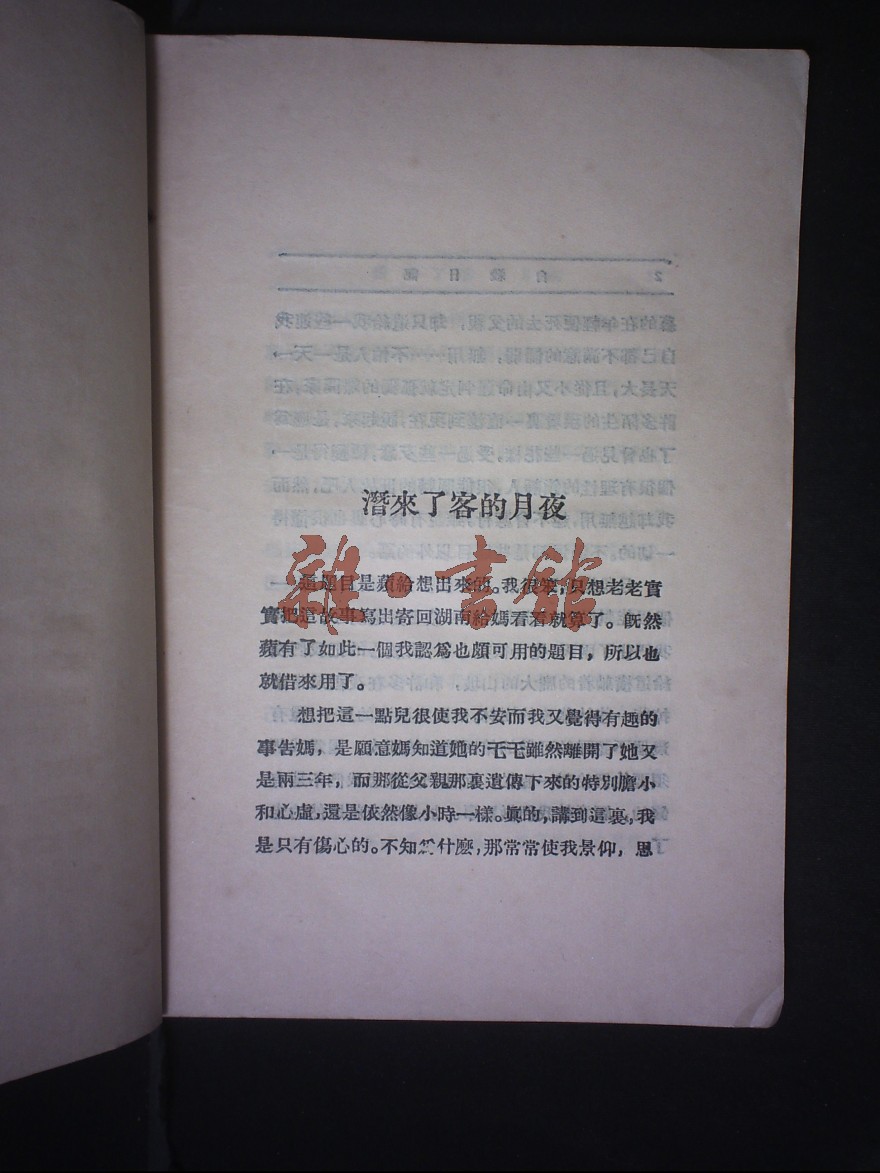 潛來了客的月夜
雜·書館
一這題目是蘋給想出來的。我很笨,只想老老實
實把這故事寫出寄回湖南給媽看看就算了。旣然
蘋有了如此一個我認爲也頗可用的題目,所以也
就借來用了。
想把這一點兒很使我不安而我又覺得有趣的
事告媽,是願意媽知道她的毛毛雖然離開了她又
是兩三年,而那從父親那裏遺傳下來的特別膽小
和心虛,還是依然像小時一樣。眞的,講到這裏,我
是只有傷心的。不知爲什麽,那常常使我景仰,思